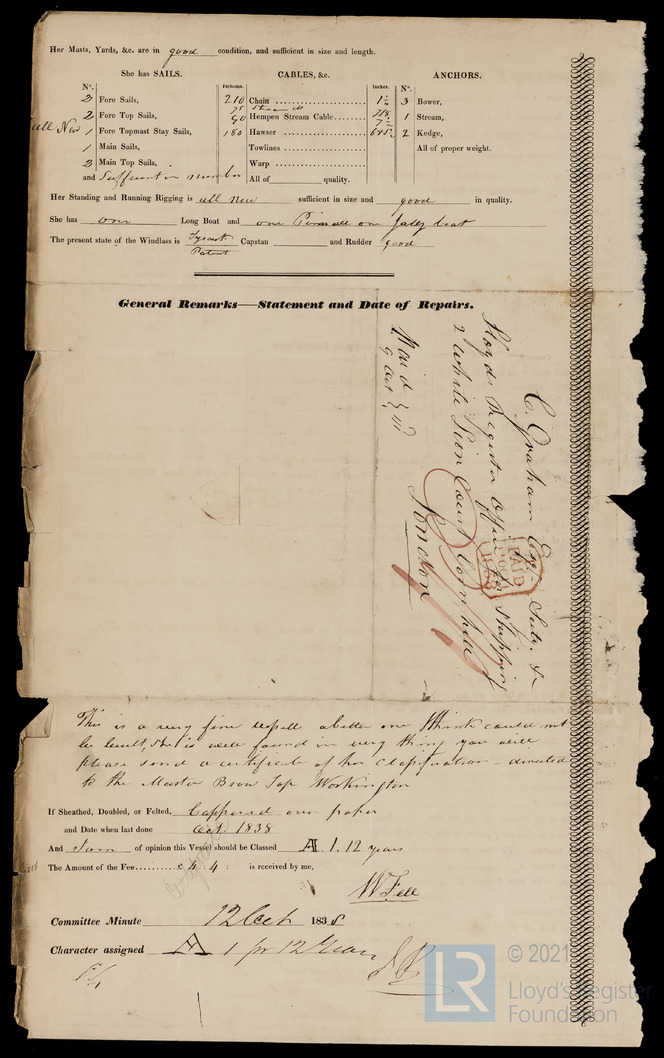 Her Masts, Yards, &c. are in good condition, and sufficient in size and length.
She has SAILS.
CABLES, &c.
ANCHORS.
Nº.
Fathoms.
Inches.
Nº.
2 Fore Sails,
210 Chain 1½
3 Bower,
75
2 Fore Top Sails,
90 Hempen Stream Cable
1 Stream,
all New 1 Fore Topmast Stay Sails,
180 Hawser
2 Kedge,
1 Main Sails,
Towlines
All of proper weight.
2 Main Top Sails,
Warp
and Sufficient in number
All of quality.
Her Standing and Running Rigging is all New sufficient in size and good in quality.
She has one Long Boat and one Pinnace one Jolly boat
The present state of the Windlass is Capstan and Rudder good
Patent
General Remarks—Statement and Date of Repairs.
C. Graham Esqr Secty &c
Lloyds Register Office for Shipping
2 White Lion Court Cornhill
London
PAID
1838
This is a very fine vessell a better one I think could not
be built, She is well found in very thing you will
please send a certificate of her Classification – directed
to the Master Brow Top Workington
If Sheathed, Doubled, or Felted, Coppered over paper
and Date when last done Oct. 1838
And I am of opinion this Vessel should be Classed A 1. 12 years
The Amount of the Fee £ 4 : 4 : is received by me,
W Fell
Committee Minute 12 Oct 1838
Character assigned A 1 for 12 Years
LR
© 2021
Lloyd's Register
Foundation